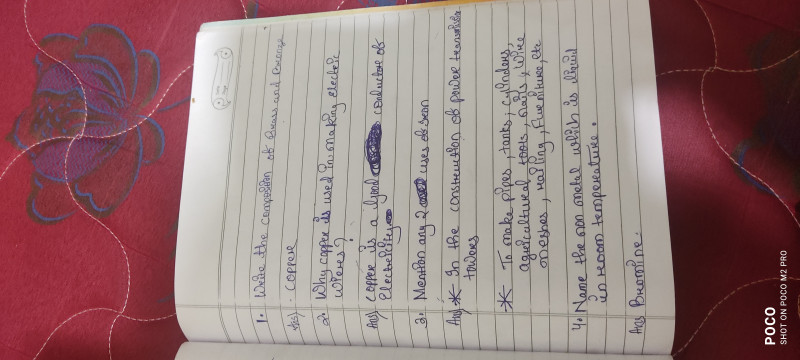 1. Write the composition of Brass and Bronze
Ans) . copper
2. Why copper is used in making electric
wires?
Ans) copper is a good conductor of
Electricity
3. Mention any 2 uses of Iron
Ans) * In the construction of power transmission
towers
* To make pipes, tanks, cylinders,
agricultural tools, nails, wire
meshes, railing, furniture, etc
4. Name the non metal which is liquid
in room temperature.
Ans) Bromine.
POCO
SHOT ON POCO M2 PRO